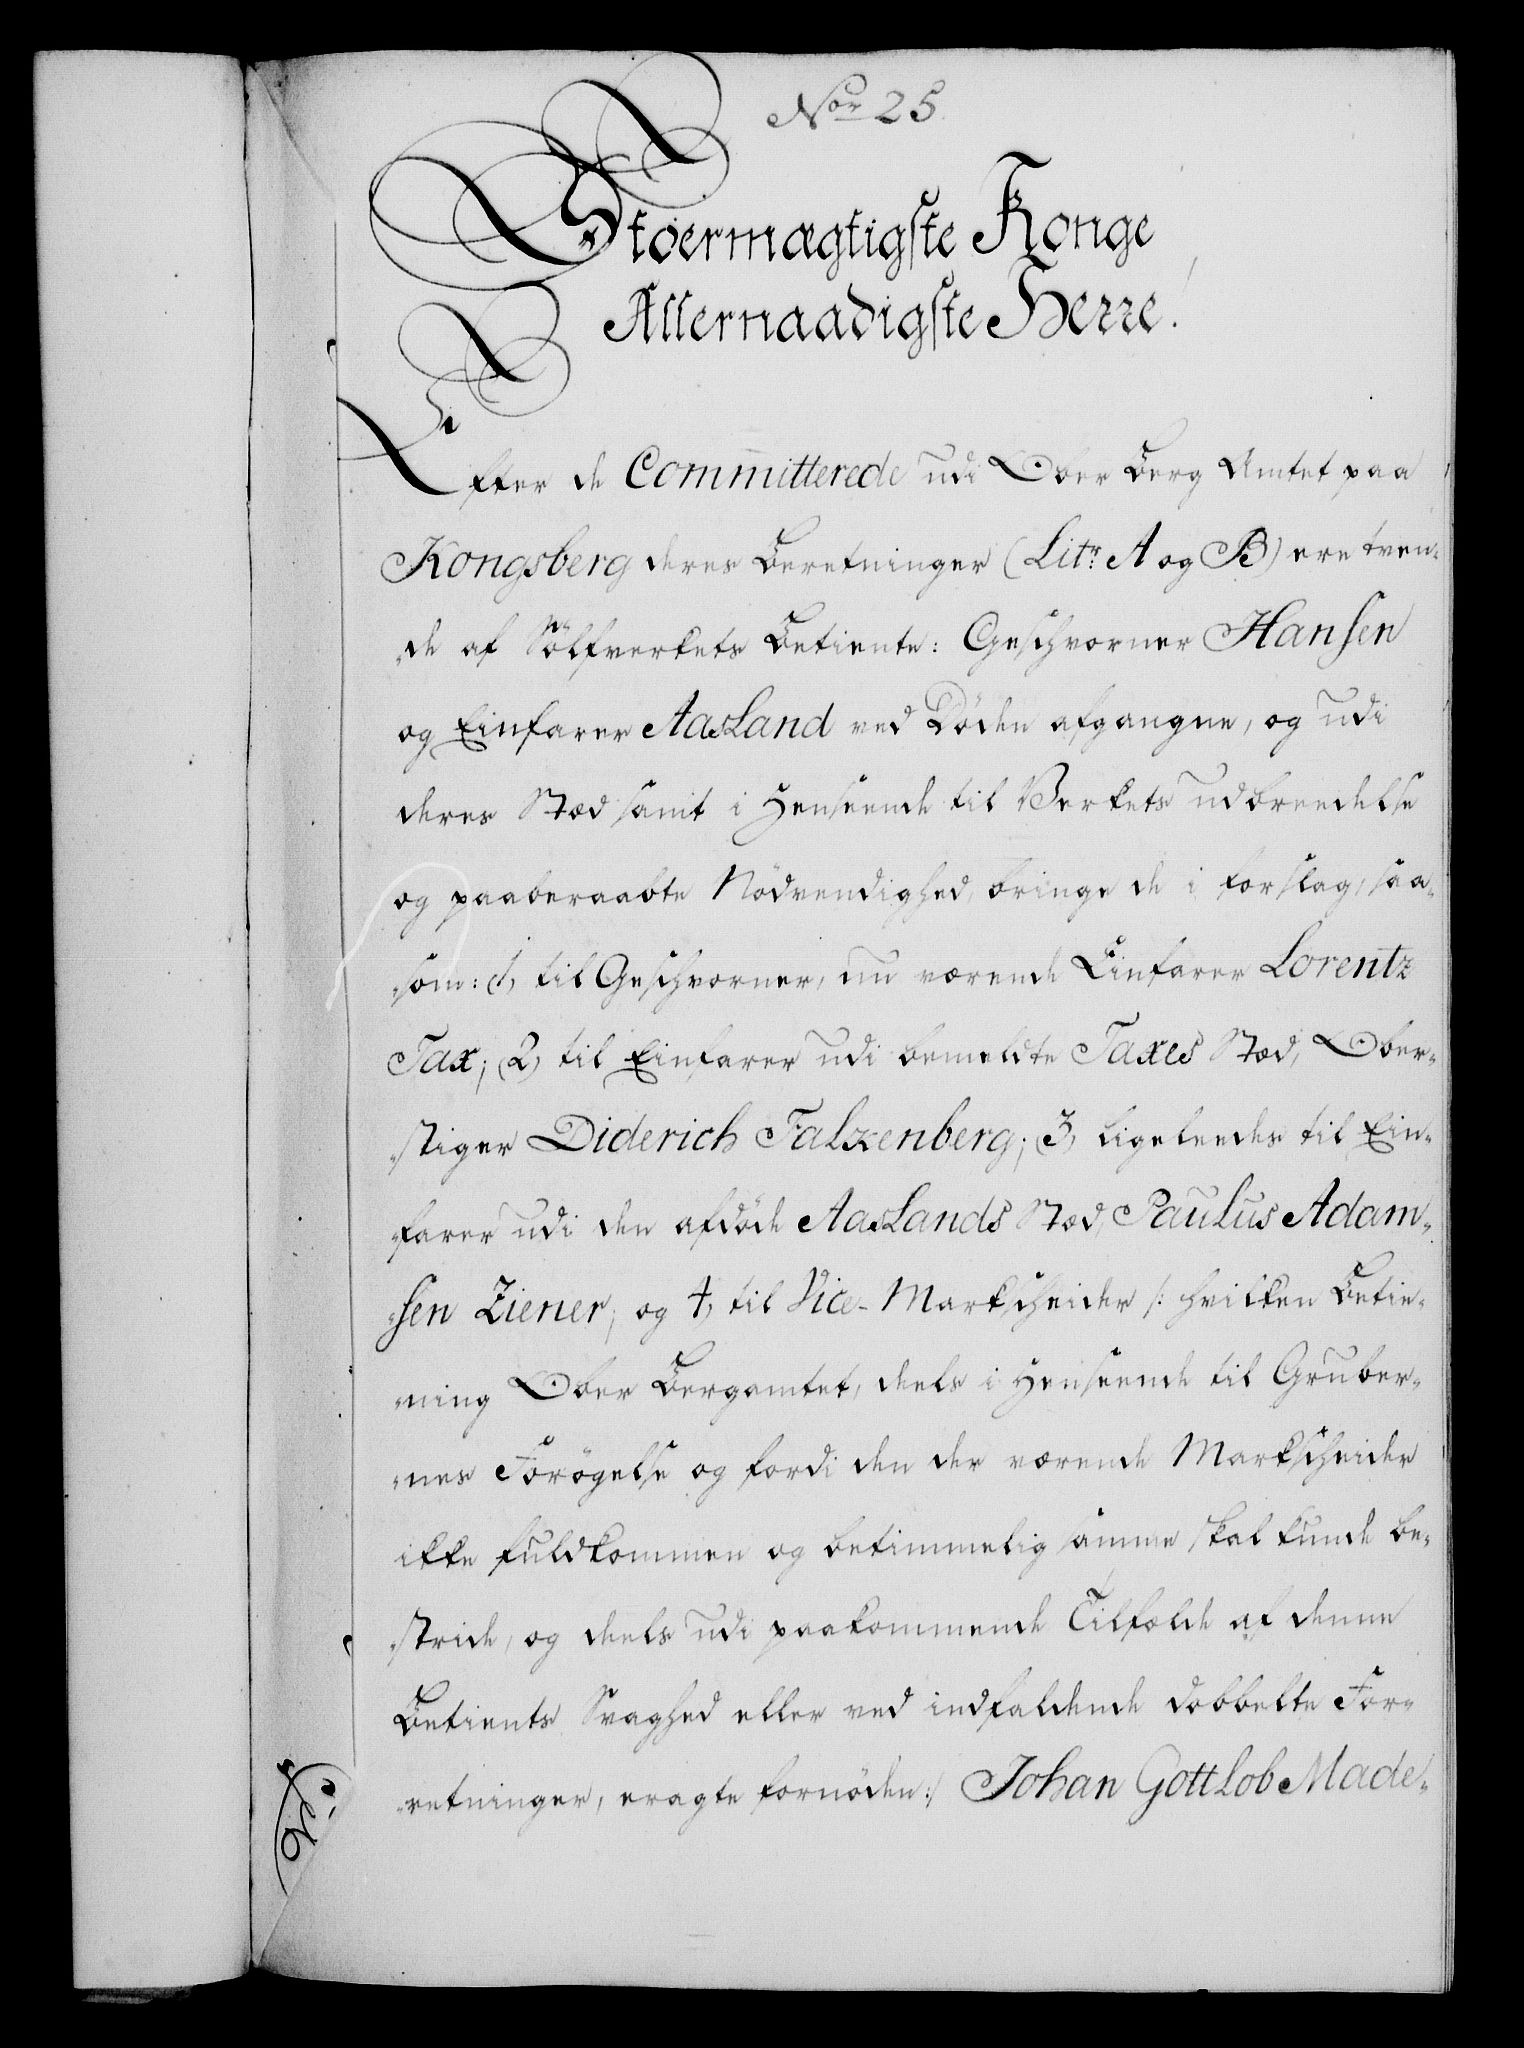 Nor 25.
Stoermægtigste Konge
Allernaadigste Herre!
Efter de Committerede udi Ober Berg Amtet paa
Kongsberg deres Beretninger (Litr. A og B) ere tven-
de af Sölfverkets Betiente: Geschvorner Hansen
og Einfarer Aasland ved Döden afgangne, og udi
deres Stæd samt i Henseende til Verkets udbreedelse
og paaberaabte Nödvendighed, bringe de i forslag, saa-
som: 1, til Geschvorner, nu værende Einfarer Lorentz
Tax; 2, til Einfarer udi bemeldte Taxes Stæd, Ober-
stiger Diderich Falxenberg; 3, ligeleedes til Ein-
farer udi den afdöde Aaslands Stæd, Paulus Adam-
sen Ziener, og 4, til Vice-Markscheider /: hvilken Betie-
ning Ober Bergamtet, deels i Henseende til Gruber-
nes Forögelse og fordi den der værende Markscheider
ikke fuldkommen og betimmelig samme skal kunde be-
stride, og deels udi paakommende Tilfælde af denne
Betients Svaghed eller ved indfaldende dobbelte For-
retninger, eragte fornöden :/ Johan Gottlob Made-